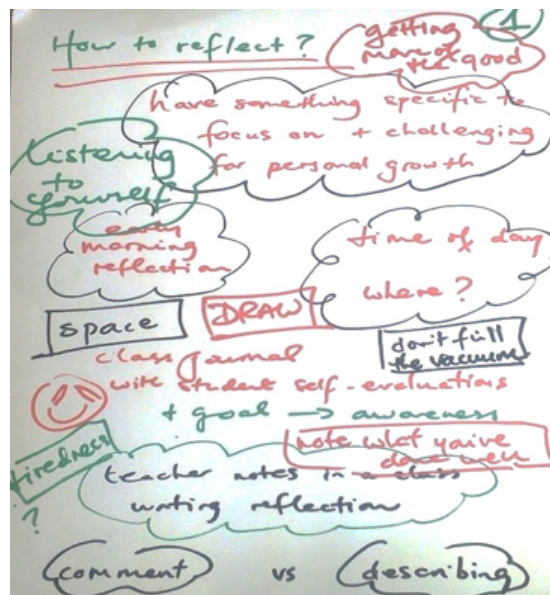 1
How to reflect?
getting
more of
the good
have something specific to
focus on + challenging
for personal growth
listening
to
yourself
early
morning
reflection
time of day
where?
space
DRAW
don't fill
the vacuum
class journal
with student self-evaluations
+ goal → awareness
tiredness
?
note what you've
done well
teacher notes in a class
writing reflection
comment vs describing